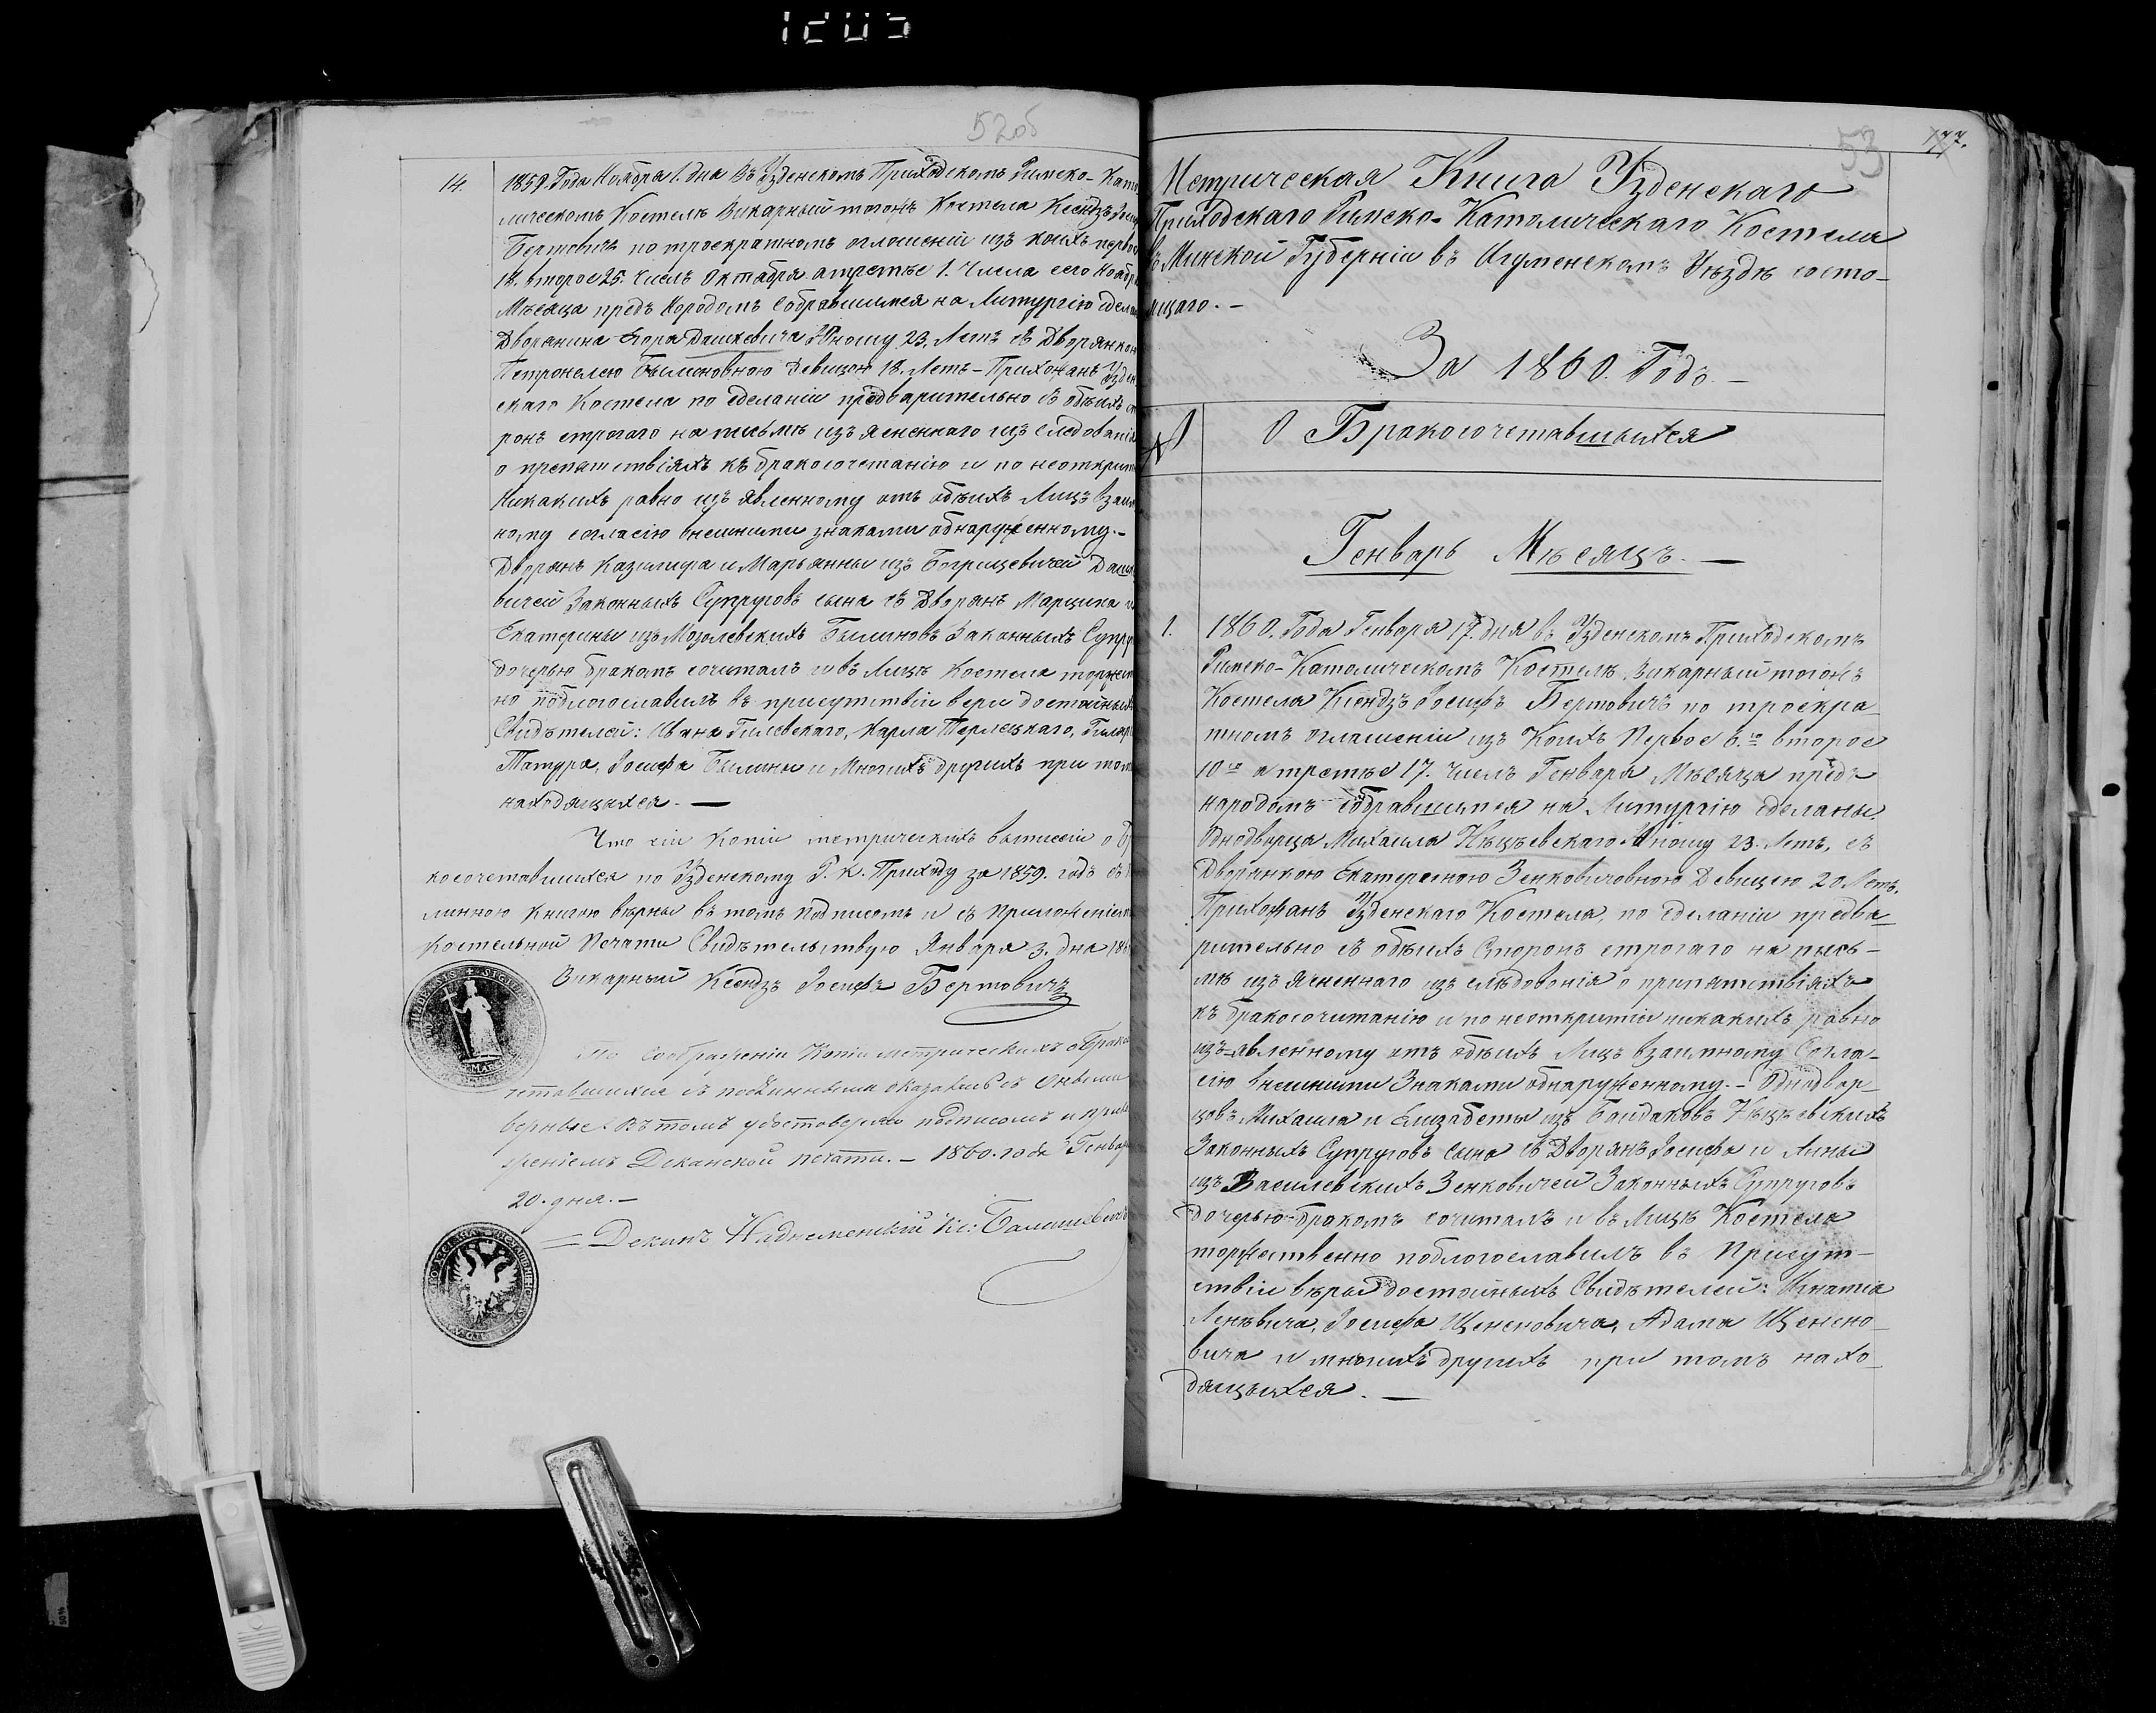 52об
14. 1859. Года Ноября 1. дня в Узденскомъ Приходскомъ Римско-Като
лическомъ Костелѣ Викарный тогожъ Костела Ксендзъ
Бертовичъ по троекратномъ оглошеніи изъ коихъ первое
18. второе 25. числъ Октабря а третье 1. числа сего Ноабр
Мѣсяца предъ Народомъ собравшимся на Литургію здела
Дворянина Дашкевича Юношу 23. Летъ съ Дворянкою
Петронелею Былиновною Девицою 18. Летъ – Прихожанъ Узден
скаго Костела по зделаніи предварительно съ обѣихъ ст
ронъ строгаго на письмѣ изъясненнаго изъ следованія
о препятствіяхъ къ бракосочетанію и по неоткрыт
Никакихъ равно изъявленному отъ обѣихъ Лицъ взаим
ному согласію внешними знаками обнаруженному. –
Дворянъ Казимира и Марьянны изъ Богрицевичей Дашк
вичей Законныхъ Супруговъ сына съ Дворянъ Марцина и
Екатерины изъ Мозолевскихъ Былиновъ Законныхъ Супру
дочерью бракомъ сочиталъ и въ Лицѣ Костела торжест
но поблогославилъ въ присутствіи веры достойныхъ
Свидѣтелей: Ивана Гилевскаго, Карла Терлецкаго,
Татура, Іосифа Былины и Многихъ другихъ при томъ
находящихся. —
Что сіи Копіи метрическихъ выписей о Бр
косочетавшихся по Узденскому Р. К. Приходу за 1859. годъ съ
линною Книгою вѣрны въ томъ подписомъ и съ приложеніем
Костельной Печати Свидѣтельствую Января 3. дня 18
Викарный Ксендзъ Іосифъ Бертовичъ
По соображеніи Копіи метрическихъ о Брако
четавшихся съ подлинными оказались онѣ
верные. Въ томъ удостоверяю подписомъ и прило
женіемъ Деканской печати. – 1860. года Генвар
20. дня. –
Деканъ Надниеменскій Кс:
53
177.
Метрическая Книга Узденскаго
Приходскаго Римско-Католическаго Костела
въ Минской Губерніи въ Игуменскомъ Уѣздѣ состо-
ящаго. –
За 1860. Годъ. –
№ О Бракосочетавшихся
Генварь Мѣсяцъ. —
1. 1860. Года Генваря 17. дня въ Узденскомъ Приходскомъ
Римско-Католическомъ Костелѣ Викарный тогожъ
Костела Ксендзъ Іосифъ Бертовичъ по троекра-
тномъ оглашеніи изъ Коихъ Первое 6.го второе
10го а третье 17. числъ Генваря Мѣсяца предъ
народомъ собравшимся на Литургію зделаны.
Однодворца Михаила Юношу 23. Летъ, съ
Дворянкою Екатериною Зенковичовною Девицею 20 Летъ.
Прихожанъ Узденскаго Костела, по зделаніи предва-
рительно съ обѣихъ Сторонъ строгаго на пись-
мѣ изъясненнаго изъ слѣдованія о припятствіяхъ
къ бракосочитанію и по неоткритіи никакихъ равно
изъ-явленному отъ обѣихъ Лицъ взаимному Согла-
сію внешними Знаками обнаруженному. – Однодвор-
цовъ Михаила и Елизабеты изъ
Законныхъ Супруговъ сына съ Дворянъ Іосифа и Анны
изъ Василевскихъ Зенковичей Законныхъ Супруговъ
дочерью бракомъ сочиталъ и въ Лицѣ Костела
торжественно поблогославилъ въ Присут-
ствіи вѣры достойныхъ Свидѣтелей: Игнатія
Ленкѣвича, Іосифа Щененовича, Адама Щенено-
вича и многихъ другихъ при томъ нахо-
дящыхся. —